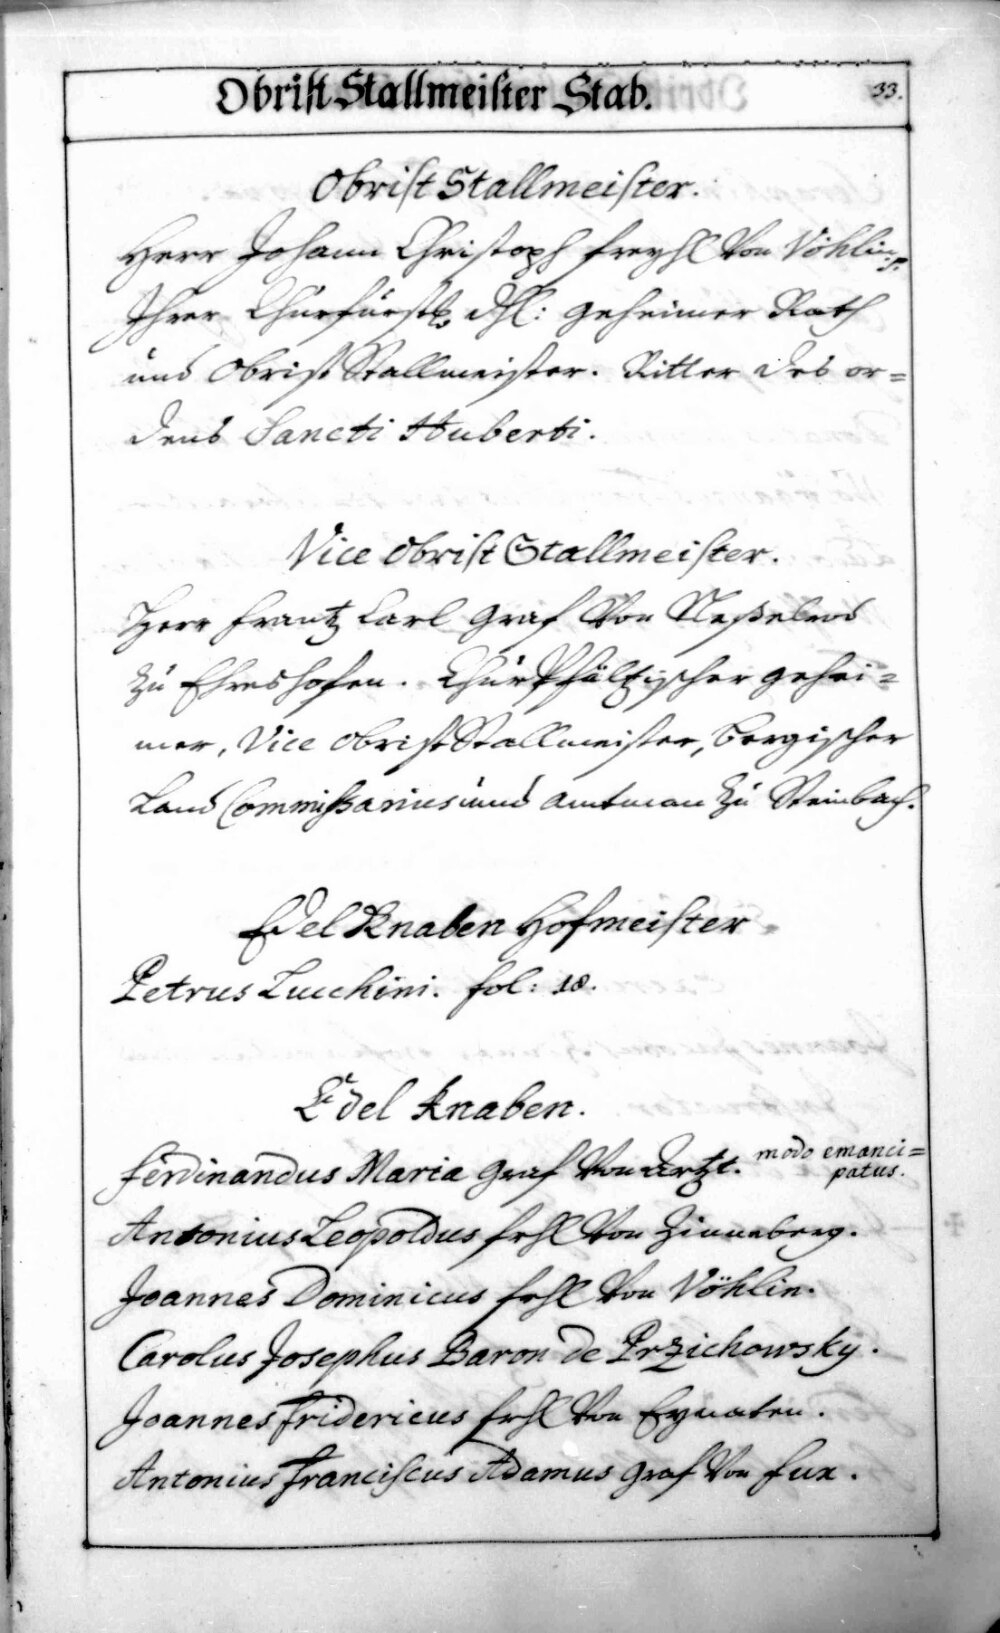 Obrist Stallmeister Stab.
33.
Obrist Stallmeister.
Herr Johann Christoph freyhl Von Vöhlin,
Ihrer Churfürstl: dhl: geheimer Rath
und Obrist Stallmeister. Ritter des or=
dens Sancti Huberti.
Vice Obrist Stallmeister.
Herr Frantz Carl Graf Von Neßelrod
zu Ehreshofen. ChurPfältzischer gehei=
mer, Vice Obrist Stallmeister, bergischer
Land Commissarius und Amtman zu Steinbach.
Edel Knaben Hofmeister
Petrus Lucchini. fol: 18.
Edel Knaben.
Ferdinandus Maria Graf Von Artzt. modo emanci=
patus.
Antonius Leopoldus frhl Von Zinneberg.
Joannes Dominicus frhl Von Vöhlin.
Carolus Josephus Baron de Przichowsky.
Joannes Fridericus frhl Von Eynaten.
Antonius Franciscus Adamus Graf Von Fux.